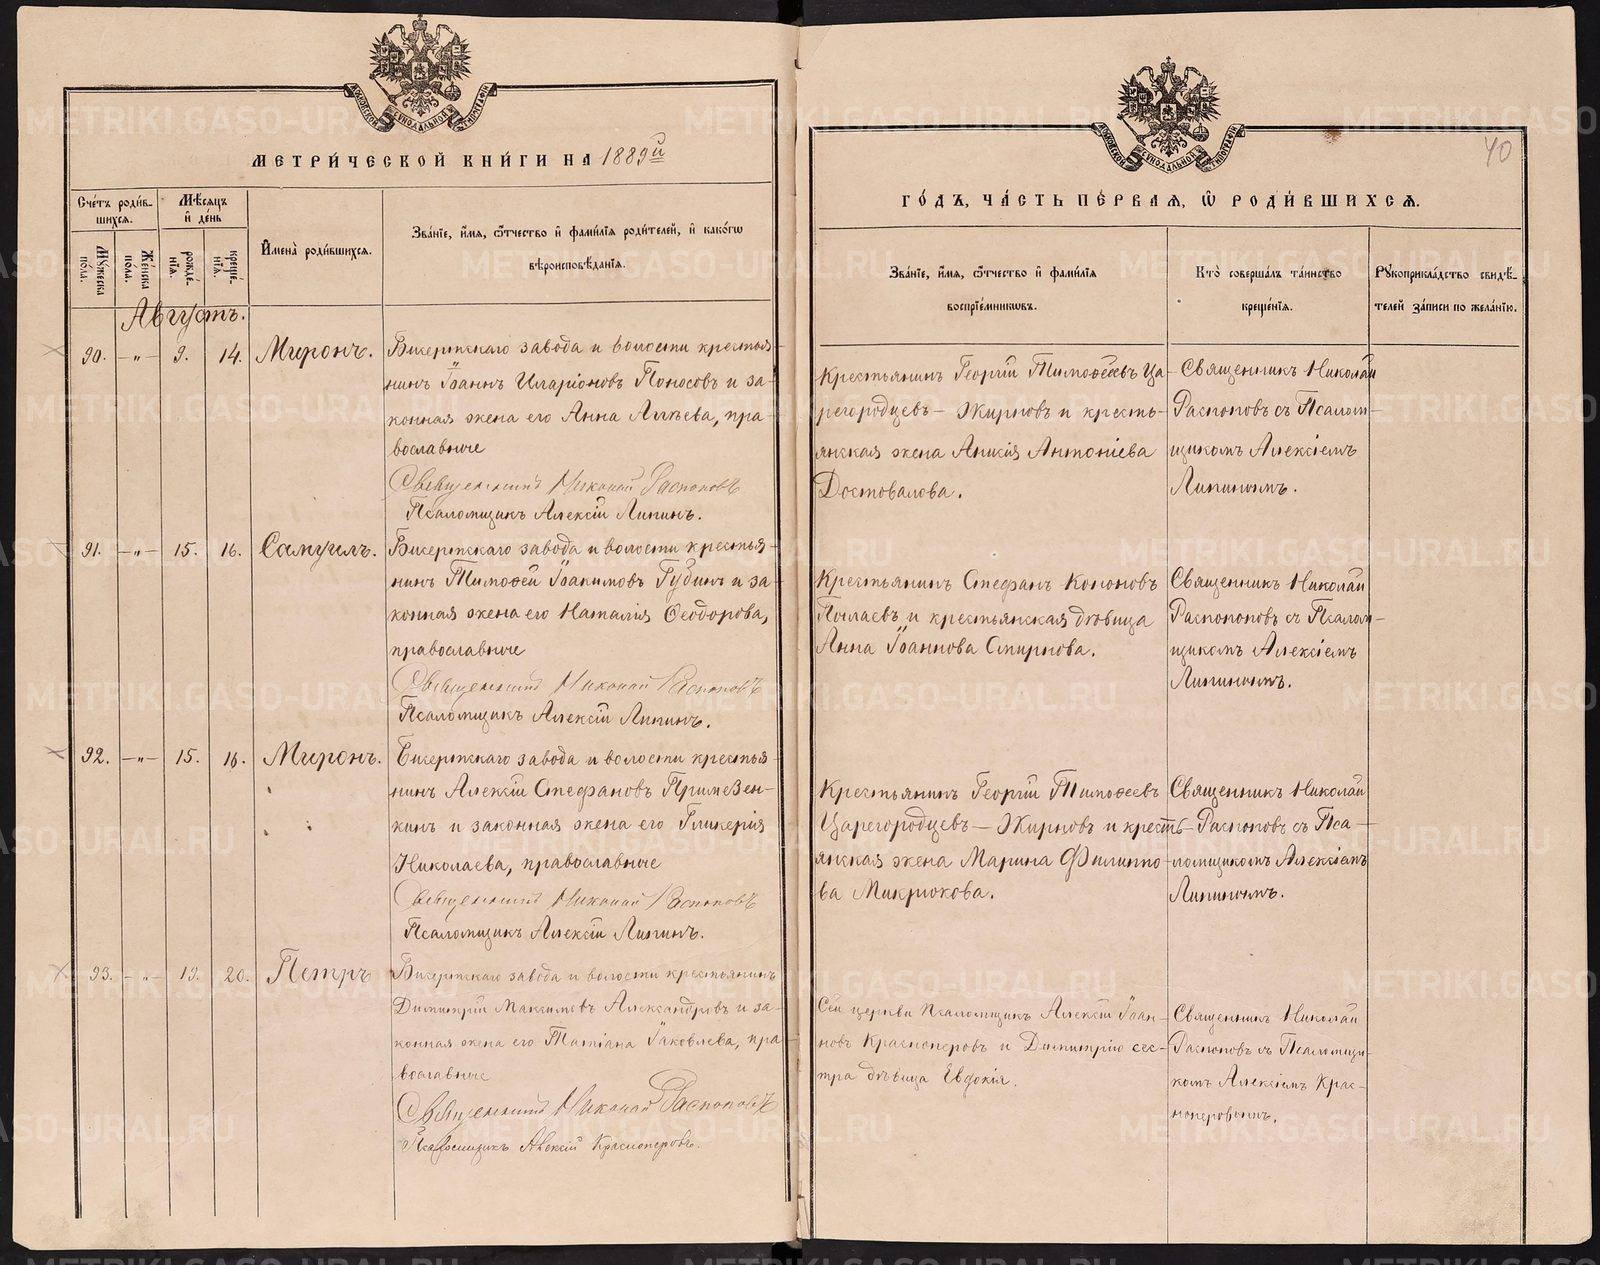 МОСКОВСКОЙ СѴНОДАЛЬНОЙ ТИПОГРАФІИ
МЕТРИ́ЧЕСКОЙ КНИ́ГИ НА 1889й
Сче́тъ роди́в-
шихся.
Мѣ́сяцъ
и҆ де́нь
Му́жеска
по́ла.
Же́нска
по́ла.
рожде́-
нїя.
креще́-
нїя.
И҆мена̀ роди́вшихся.
Зва́нїе, и҆́мя, ѻ҆́тчество и҆ фамі́лїя роди́телей, и҆ како́гѡ
вѣроисповѣ́данїя.
Августъ.
90. —„— 9. 14. Миронъ.
Бисертскаго завода и волости крестья-
нинъ Іоаннъ Иларіоновъ Поносовъ и за-
конная жена его Анна Алѣева, пра-
вославные
Священникъ Николай Распоповъ
Псаломщикъ Алексій Липинъ.
91. —„— 15. 16. Самуилъ.
Бисертскаго завода и волости крестья-
нинъ Тимоѳей Іоакимовъ Гудинъ и за-
конная жена его Наталія Ѳеодорова,
православные
Священникъ Николай Распоповъ
Псаломщикъ Алексій Липинъ.
92. —„— 15. 16. Миронъ.
Бисертскаго завода и волости крестья-
нинъ Алексій Стефановъ Примезен-
кинъ и законная жена его Гликерія
Николаева, православные
Священникъ Николай Распоповъ
Псаломщикъ Алексій Липинъ.
93. —„— 19. 20. Петръ
Бисертскаго завода и волости крестьянинъ
Димитрій Максимовъ Александровъ и за-
конная жена его Татіана Іаковлева, пра-
вославные
Священникъ Николай Распоповъ
Псаломщикъ Алексій Красноперовъ.
МОСКОВСКОЙ СѴНОДАЛЬНОЙ ТИПОГРАФІИ
40
ГО́ДЪ, ЧА́СТЬ ПЕ́РВАЯ, Ѡ҆ РОДИ́ВШИХСЯ.
Зва́нїе, и҆́мя, ѻ҆́тчество и҆ фамі́лїя
воспрїе́мникѡвъ.
Кто̀ соверша́лъ та́инство
креще́нїя.
Рꙋкоприкла́дство свидѣ́-
телей за́писи по жела́нїю.
Крестьянинъ Георгій Тимоѳеевъ Ца-
регородцевъ — Жирновъ и кресть-
янская жена Анисія Антоніева
Достовалова.
Священникъ Николай
Распоповъ съ Псалом-
щикомъ Алексіемъ
Липинымъ.
Крестьянинъ Стефанъ Кононовъ
Поплаевъ и крестьянская дѣвица
Анна Іоаннова Смирнова.
Священникъ Николай
Распоповъ съ Псалом-
щикомъ Алексіемъ
Липинымъ.
Крестьянинъ Георгій Тимоѳеевъ
Царегородцевъ — Жирновъ и кресть-
янская жена Марина Филиппо-
ва Микрюкова.
Священникъ Николай
Распоповъ съ Пса-
ломщикомъ Алексіемъ
Липинымъ.
Сей церкви Псаломщикъ Алексій Іоан-
новъ Красноперовъ и Димитрію сес-
тра дѣвица Евдокія.
Священникъ Николай
Распоповъ съ Псаломщи-
комъ Алексіемъ Крас-
ноперовымъ.
METRIKI.GASO-URAL.RU